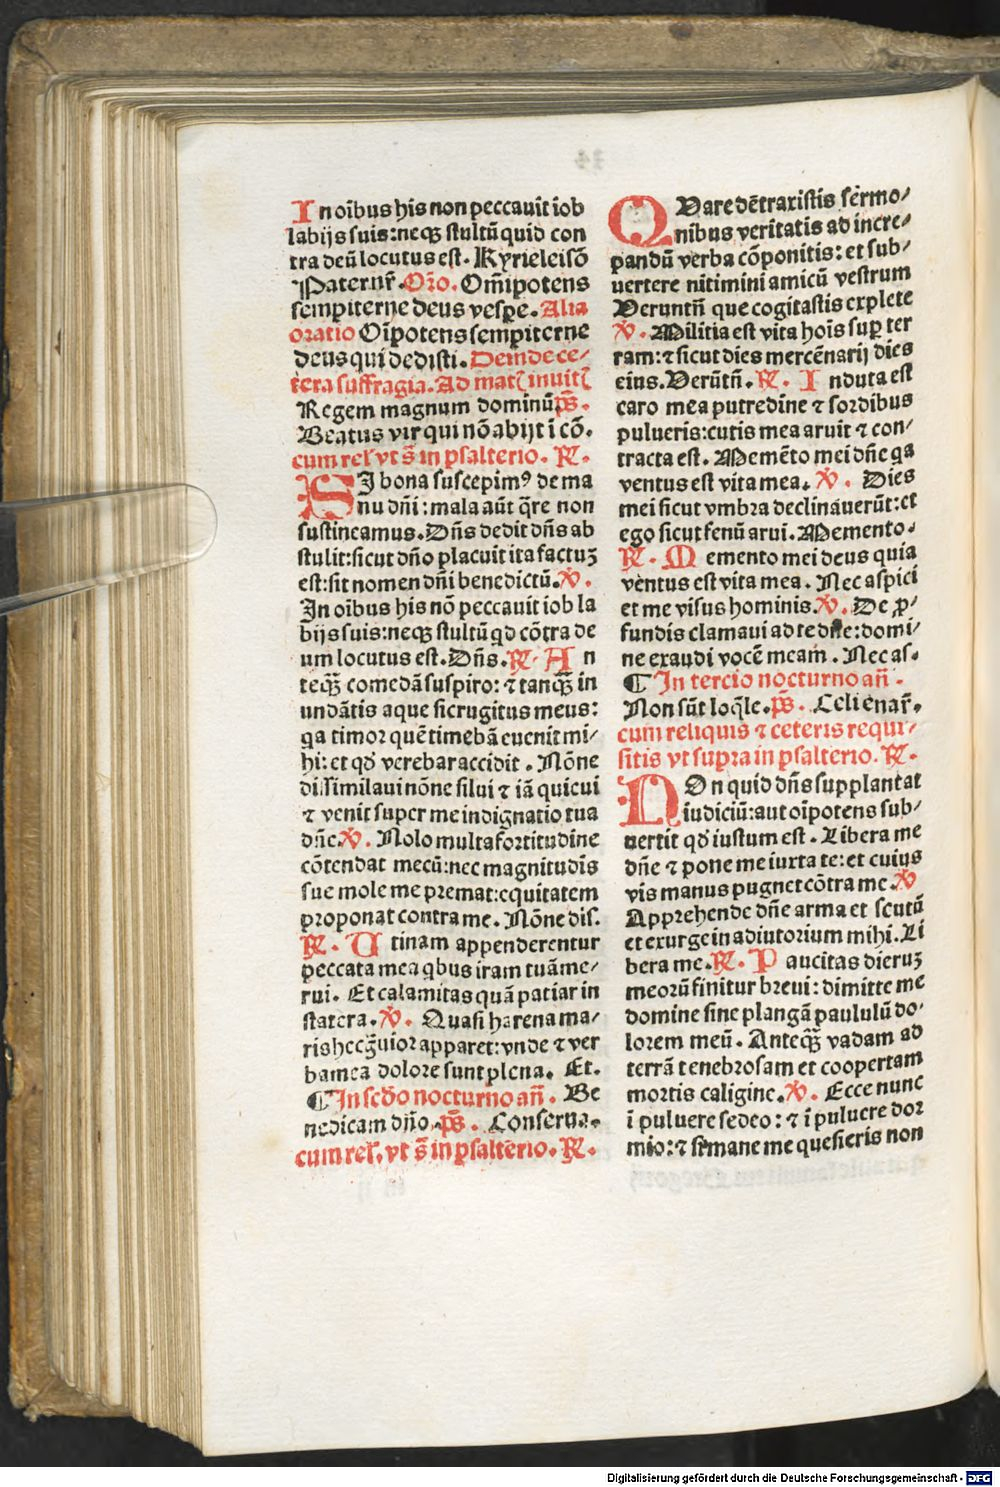 In oībus his non peccauit iob
labijs suis:neqȝ stultū quid con
tra deū locutus est. Kyrieleisō
Paternr̄. Orō. Om̄ipotens
sempiterne deus vespe. Alia
oratio Oīpotens sempiterne
deus qui dedisti. Deinde ce⸗
tera suffragia. Ad mat̄ inuit̄
Regem magnum dominū p̄s.
Beatus vir qui nō abijt ī cō.
cum rel' vt s̄ in psalterio. R̄.
SI bona suscepimꝰ de ma
nu dn̄i:mala aūt q̄re non
sustineamus. Dn̄s dedit dn̄s ab
stulit:sicut dn̄o placuit ita factuȝ
est:sit nomen dn̄i benedictū. v̄.
In oībus his nō peccauit iob la
bijs suis:neqȝ stultū qd cōtra de
um locutus est. Dn̄s. R̄. An
teqȝ̄ comedā suspiro: ⁊ tanqȝ̄ in
undātis aque sic rugitus meus:
qa timor quē timebā euenit mi⸗
hi:et qd̓ verebar accidit. Nōne
dissimilaui nōne silui ⁊ iā quieui
⁊ venit super me indignatio tua
dn̄e. v̄. Nolo multa fortitudine
cōtendat mecū:nec magnitudīs
sue mole me premat:equitatem
proponat contra me. Nōne dis.
R̄. Utinam appenderentur
peccata mea qbus iram tuā me⸗
rui. Et calamitas quā patiar in
statera. v̄. Quasi harena ma⸗
ris hec g̃uior apparet:vnde ⁊ ver
ba mea dolore sunt plena. Et.
¶ In scd̓o nocturno an̄. Be
nedicam dn̄o. p̄s. Conserua.
cum rel'. vt s̄ in psalterio. R̄.
QUare detraxistis sermo⸗
nibus veritatis ad incre⸗
pandū verba cōponitis: et sub⸗
uertere nitimini amicū vestrum
Veruntn̄ que cogitastis explete
v̄. Militia est vita hoīs suꝑ ter
ram: ⁊ sicut dies mercēnarij dies
eius. Verūtn̄. R̄. Induta est
caro mea putredine ⁊ sordibus
pulueris:cutis mea aruit ⁊ con⸗
tracta est. Memēto mei dn̄e qa
ventus est vita mea. v̄. Dies
mei sicut vmbra declinauerūt:et
ego sicut fenū arui. Memento.
R̄. Memento mei deus quia
ventus est vita mea. Nec aspici
et me visus hominis. v̄. De ꝓ⸗
fundis clamaui ad te dn̄e:domi⸗
ne exaudi vocē meam. Nec as.
¶ In tercio nocturno an̄.
Non sūt loq̄le. p̄s. Celi enar̄.
cum reliquis ⁊ ceteris requi⸗
sitis vt supra in psalterio. R̄.
NOn quid dn̄s supplantat
iudiciū:aut oīpotens sub⸗
uertit qd̓ iustum est. Libera me
dn̄e ⁊ pone me iuxta te:et cuius
vis manus pugnet cōtra me. v̄
Apprehende dn̄e arma et scutū
et exurge in adiutorium mihi. Li
bera me. R̄. Paucitas dieruȝ
meorū finitur breui: dimitte me
domine sine plangā paululū do⸗
lorem meū. Anteqȝ̄ vadam ad
terrā tenebrosam et coopertam
mortis caligine. v̄. Ecce nunc
ī puluere sedeo: ⁊ ī puluere dor
mio: ⁊ si mane me quesieris non
Digitalisierung gefördert durch die Deutsche Forschungsgemeinschaft - DFG